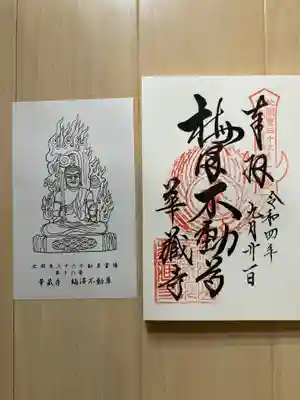 奉拝
令和四年
九月廿一日
梅沢不動尊
華藏寺
北関東三十六不動尊霊場
第十六番
華蔵寺　梅澤不動尊